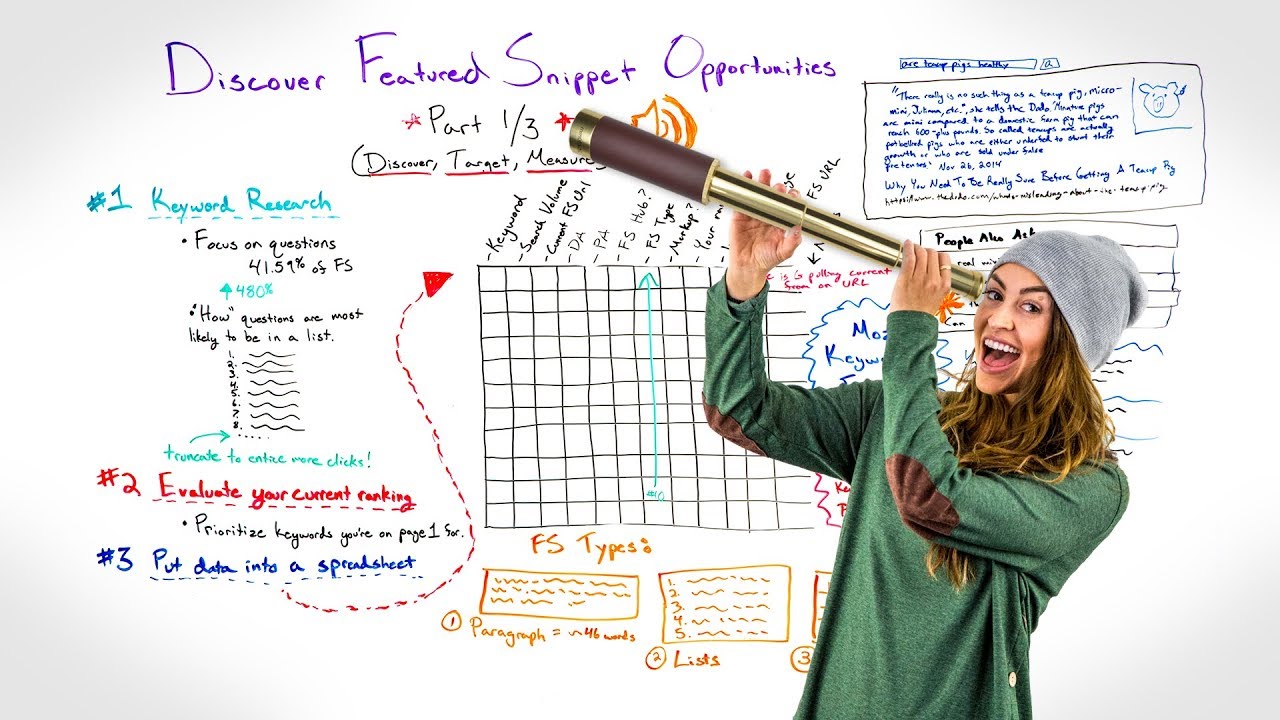 Discover Featured Snippet Opportunities
Part 1/3
(Discover, Target, Measure
#1 Keyword Research
• Focus on questions
41.59% of FS
480%
• "How" questions are most
likely to be in a list.
1.
2.
3.
4.
5.
6.
7.
8.
truncate to entice more clicks!
#2 Evaluate your current ranking
• Prioritize keywords you're on page 1 for.
#3 Put data into a spreadsheet
- Keyword
- Search Volume
- Current FS URL
- DA
- PA
- FS Hub?
- FS Type
- Markup?
- Your
FS URL
#10
is G pulling current
from an URL
Moz
Keyword
FS Types:
① Paragraph = ~46 words
1.
2.
3.
4.
5.
② Lists
③
are teacup pigs healthy
"There really is no such thing as a teacup pig, micro-
mini, Juliana, etc.", she tells the Dodo. Miniature pigs
are mini compared to a domestic farm pig that can
reach 600-plus pounds. So called teacups are actually
potbellied pigs who are either underfed to stunt their
growth or who are sold under false
pretenses." Nov 26, 2014
Why You Need To Be Really Sure Before Getting A Teacup Pig
People Also Ask
real
Can